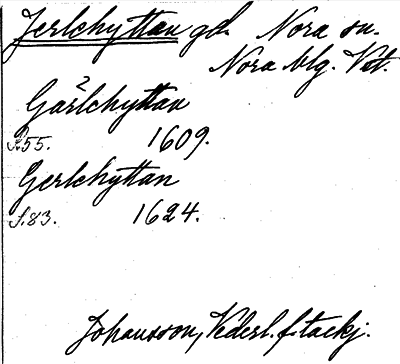 Jerlehyttan gd. Nora sn.
Nora blg. Vstm.
Gärlehyttan
S.55. 1609.
Gerlehyttan
S.83. 1624.
Johansson, Vederl. f. tackj.